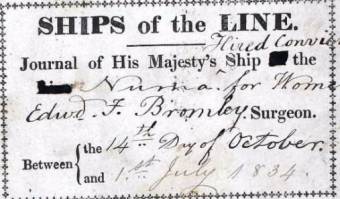 SHIPS of the LINE.
Hired Convic
Journal of His Majesty's Ship the
Numa for Wome
Edwd F. Bromley. Surgeon.
Between { the 14th Day of October.
and 1st July 1834.